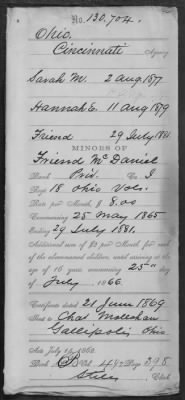 No. 130,704.
Ohio.
Cincinnati Agency
Sarah M. 2 Aug. 1877
Hannah E. 11 Aug 1879
Friend 29 July 1881
MINORS OF
Friend McDaniel
Rank Priv. Co. I
Reg't 18 Ohio Vols.
Rate per Month $8.00
Commencing 25 May 1865
Ending 29 July 1881.
Additional sum of $2 per Month for each
of the abovenamed children, until arriving at the
age of 16 years commencing 25th
of July, 1866.
Certificate dated 21 June 1869
Sent to Chas
Gallipolis Ohio
Act July 14, 1862.
Book B Vol. 4 Page 298.
Clerk